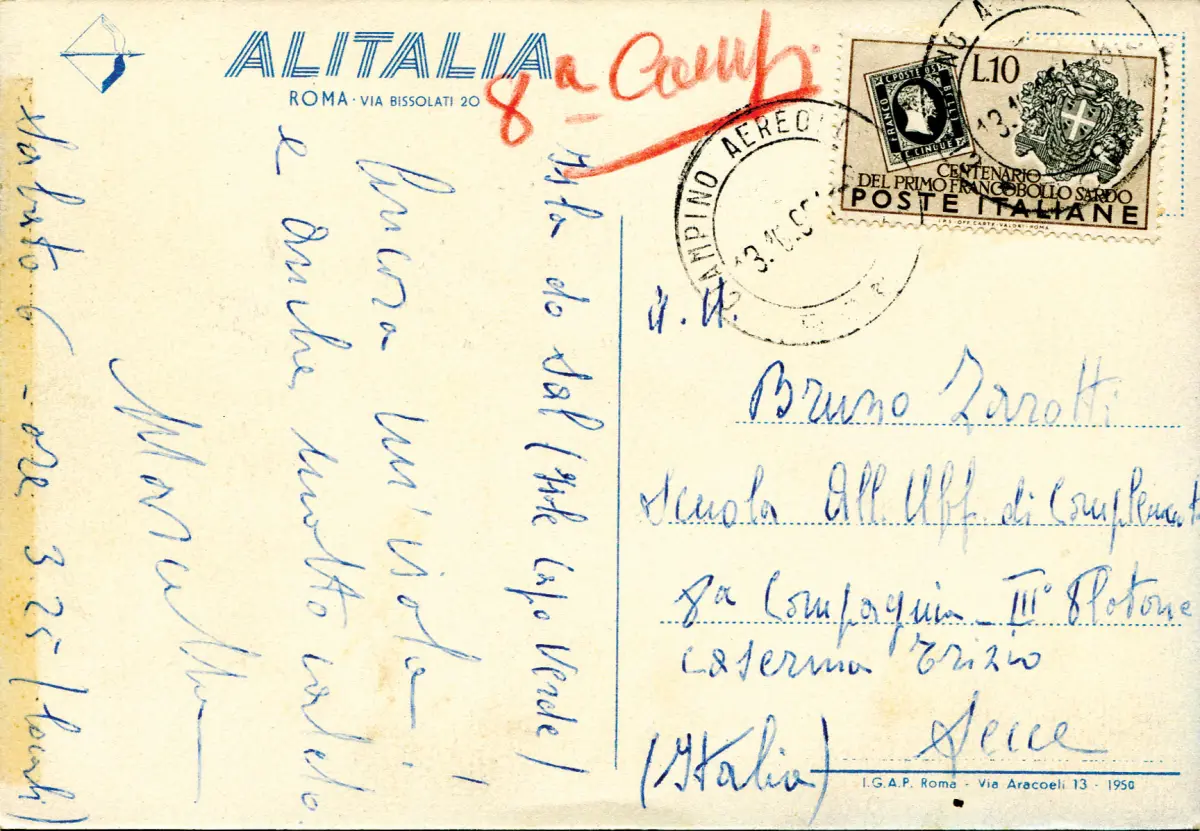 ALITALIA
ROMA · VIA BISSOLATI 20
8ª Comp.
Isla do Sal (Isole Capo Verde)
Ancora un'isola!
e anche molto calda.
Sabato 6 - ore 3 25 (locali)
CIAMPINO AEREOPORTO
L.10
FRANCO
C. POSTE
BOLLO
C. CINQUE
CENTENARIO
DEL PRIMO FRANCOBOLLO SARDO
POSTE ITALIANE
I.P.S. OFF. CARTE-VALORI-ROMA
Bruno Zarotti
Scuola All. Uff. di Complemento
8ª Compagnia - III° Plotone
Caserma Trizio
Lecce
(Italia)
I.G.A.P. Roma - Via Aracoeli 13 - 1950